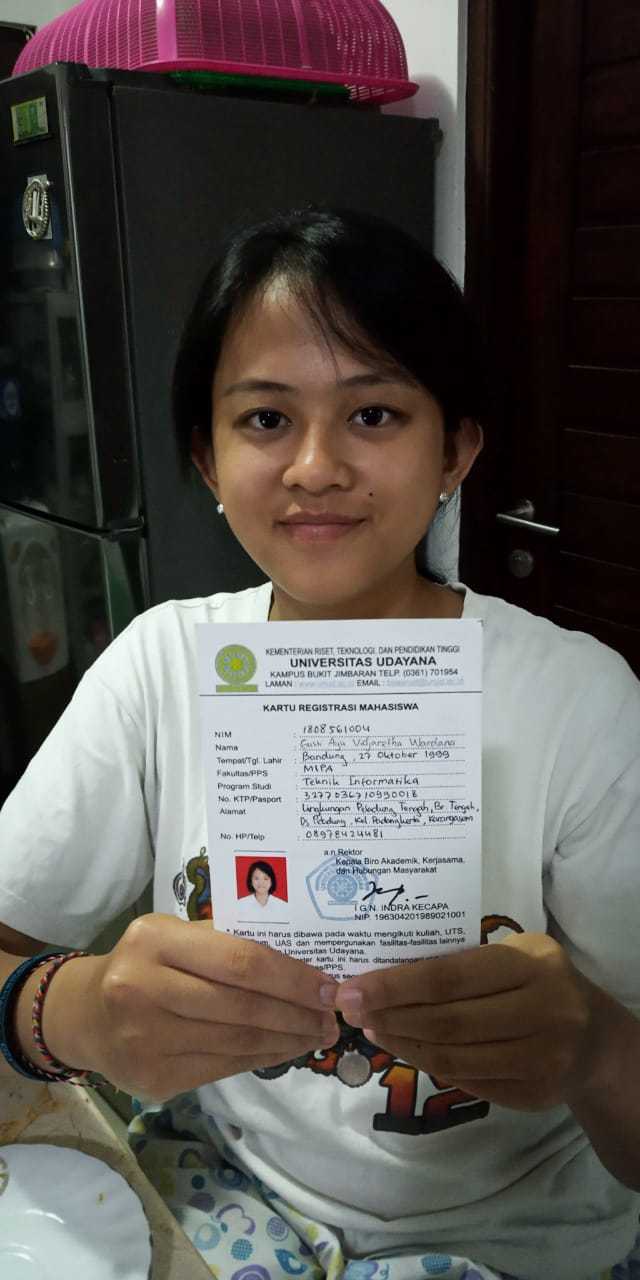 KEMENTERIAN RISET, TEKNOLOGI, DAN PENDIDIKAN TINGGI
UNIVERSITAS UDAYANA
KAMPUS BUKIT JIMBARAN TELP. (0361) 701954
LAMAN : EMAIL :
KARTU REGISTRASI MAHASISWA
NIM : 1808561004
Nama : Gusti Ayu Wardana
Tempat/Tgl. Lahir : Bandung, 27 Oktober 1999
Fakultas/PPS : MIPA
Program Studi : Teknik Informatika
No. KTP/Pasport : 3277036710990018
Alamat : Lingkungan Peladung Tengah, Br. Tengah,
Ds. Peladung, Kel. Padangkerta, Karangasem
No. HP/Telp : 08978424481
a.n Rektor
Kepala Biro Akademik, Kerjasama,
dan Hubungan Masyarakat
I G.N. INDRA KECAPA
NIP. 196304201989021001
* Kartu ini harus dibawa pada waktu mengikuti kuliah, UTS,
UAS dan mempergunakan fasilitas-fasilitas lainnya
Universitas Udayana.
kartu ini harus ditandatangani
12